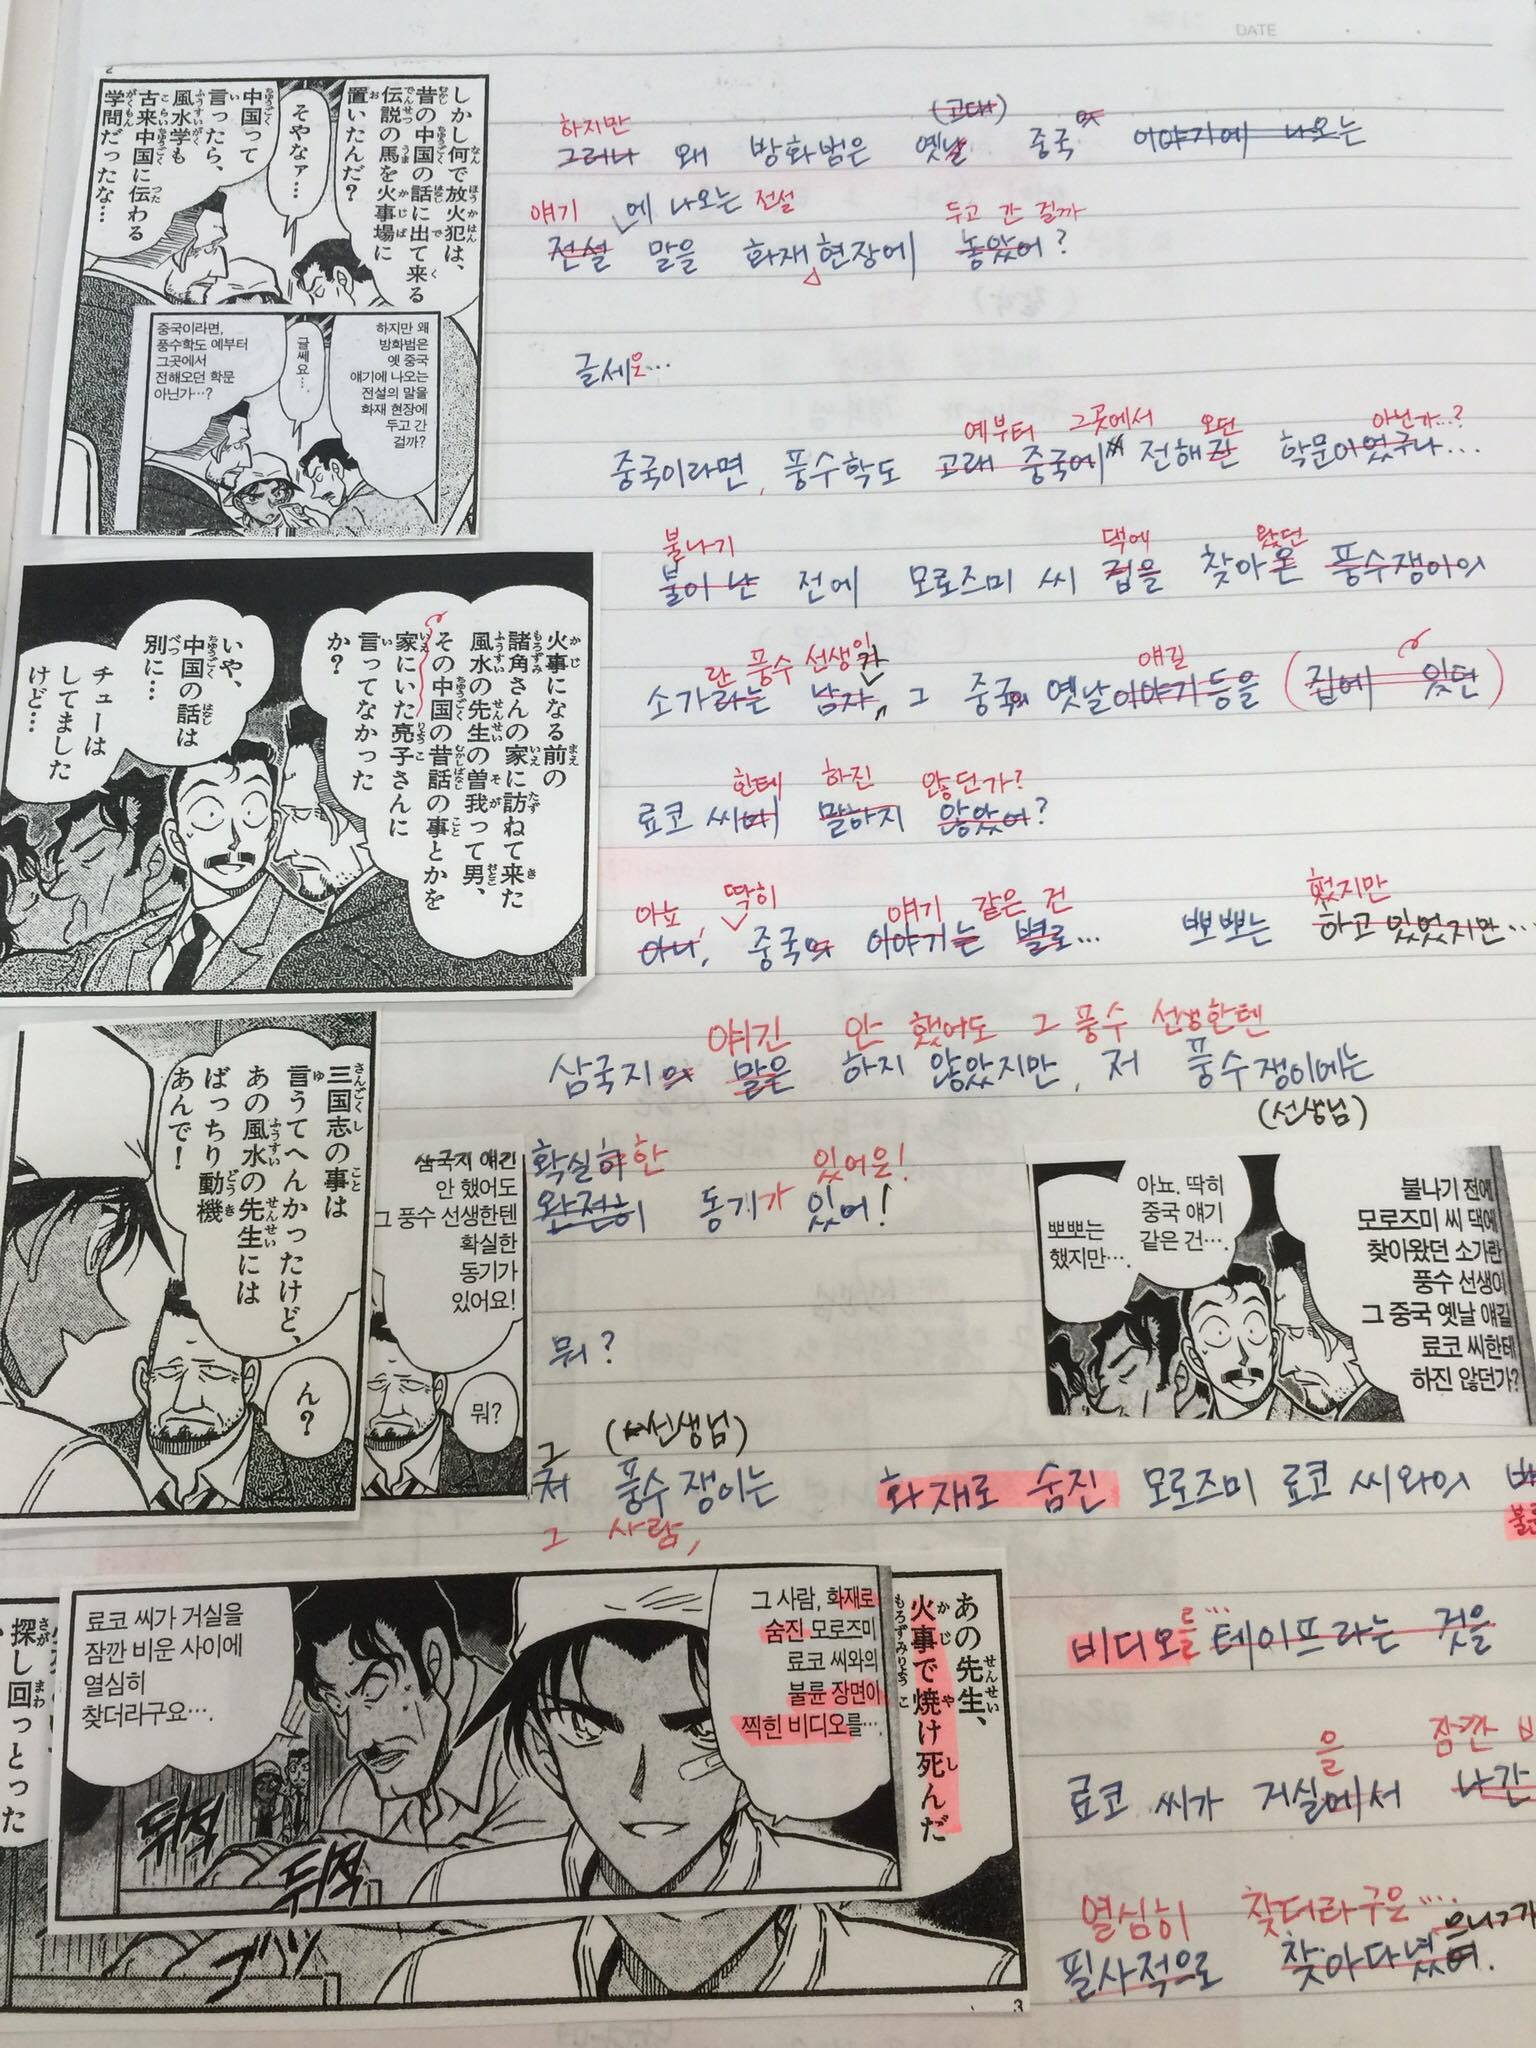 DATE
しかし何で放火犯は、
昔の中国の話に出て来る
伝説の馬を火事場に
置いたんだ？
そやなァ…
中国って
言ったら、
風水学も
古来中国に伝わる
学問だったな…
하지만 왜
방화범은
옛 중국
얘기에 나오는
전설의 말을
화재 현장에
두고 간
걸까?
글쎄요…
중국이라면,
풍수학도 예부터
그곳에서
전해오던 학문
아닌가…?
하지만 (고대)
그러나 왜 방화범은 옛날 중국의 이야기에 나오는
얘기 에 나오는 전설 두고 간 걸까
전설 말을 화재 현장에 놓았어?
글세요…
예부터 그곳에서 오던 아닌가…?
중국이라면, 풍수학도 고래 중국에서 전해 학문이었구나…
火事になる前の
諸角さんの家に訪ねて来た
風水の先生の曽我って男、
その中国の昔話の事とかを
家にいた亮子さんに
言ってなかった
か？
いや、
中国の話は
別に…
チューは
してました
けど…
불나기 댁에 왔던
불이 난 전에 모로즈미 씨 집을 찾아온 풍수쟁이의
란 풍수 선생이 얘길
소가라는 남자 그 중국의 옛날이야기 등을 (집에 있던)
한테 하진 않던가?
료코 씨에 말하지 않았어?
아뇨, 딱히 얘기 같은 건 했지만
아니, 중국의 이야기는 별로… 뽀뽀는 하고 있었지만…
얘긴 안 했어도 그 풍수 선생한텐
삼국지의 말은 하지 않았지만, 저 풍수쟁이에는
(선생님)
三国志の事は
言うてへんかったけど、
あの風水の先生には
ばっちり動機
あんで！
ん？
삼국지 얘긴
안 했어도
그 풍수 선생한텐
확실한
동기가
있어요!
뭐?
확실히 한 있어요!
완전히 동기가 있어!
뭐?
불나기 전에
모로즈미 씨 댁에
찾아왔던 소가란
풍수 선생이
그 중국 옛날 얘길
료코 씨한테
하진 않던가?
아뇨. 딱히
중국 얘기
같은 건….
뽀뽀는
했지만….
그 (선생님)
저 풍수쟁이는 화재로 숨진 모로즈미 료코 씨와의
그 사람, 불륜
あの先生、
火事で焼け死んだ
もろずみりょうこ
그 사람, 화재로
숨진 모로즈미
료코 씨와의
불륜 장면이
찍힌 비디오를….
료코 씨가 거실을
잠깐 비운 사이에
열심히
찾더라구요….
뒤적
뒤적
探し回っとった
ゴソ
3
를…
비디오 테이프라는 것을
을 잠깐
료코 씨가 거실에서 나간
열심히 찾더라구요….
필사적으로 찾아다녔어.